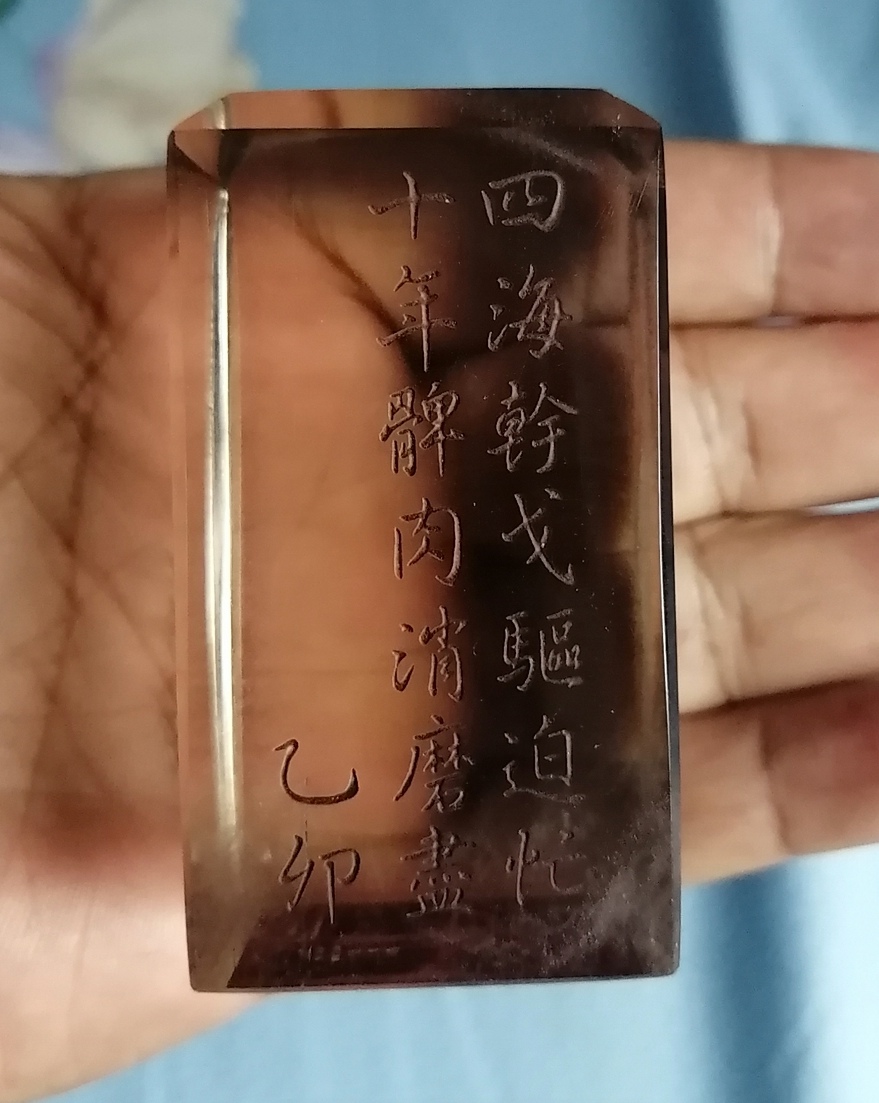 四海幹戈驅迫忙
十年髀肉消磨盡
乙卯